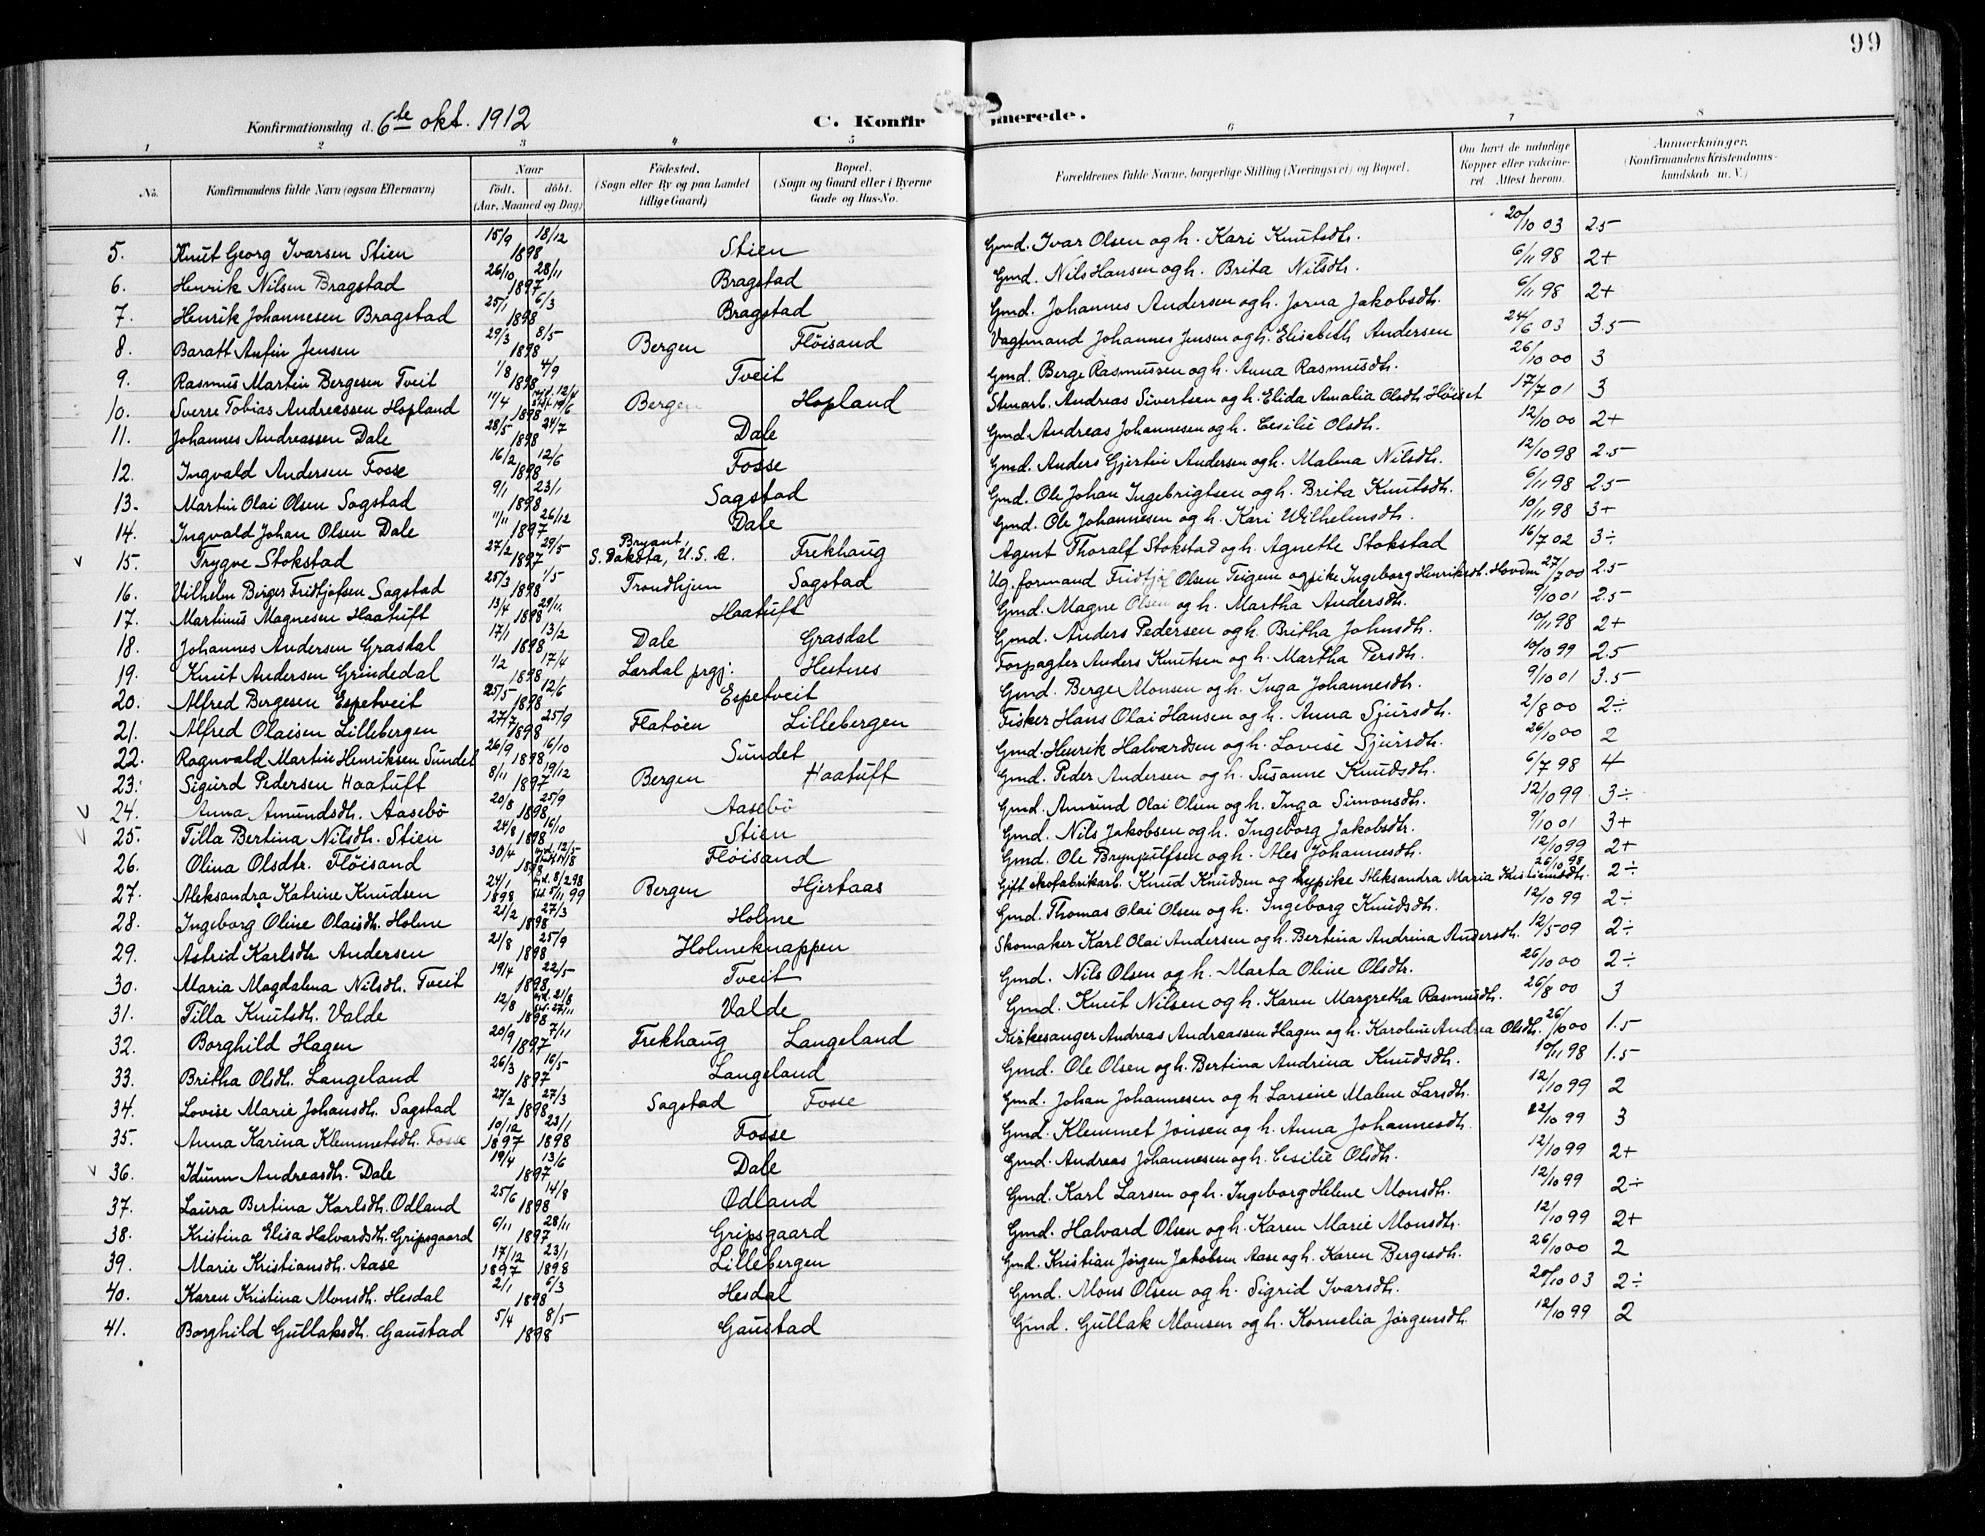 99
Konfirmationsdag d. 6te okt. 1912 C. Konfirmerede.
1 2 3 4 5 6 7 8
No. Konfirmandens fulde Navn (ogsaa Efternavn) Naar født, døbt. (Aar, Maaned og Dag) Fødested. (Sogn eller By og paa Landet tillige Gaard) Bopæl. (Sogn og Gaard eller i Byerne Gade og Hus-No. Forældrenes fulde Navne, borgerlige Stilling (Næringsvei) og Bopæl. Om havt de naturlige Kopper eller vakcineret. Attest herom. Anmærkninger. (Konfirmandens Kristendomskundskab m. V.)
5. Knut Georg Ivarsen Stien 15/9 18/12 1898 Stien Gmd. Ivar Olsen og h. Kari Knutsdtr. 20/10 03 2.5
6. Henrik Nilsen Bragstad 26/10 28/11 1897 Bragstad Gmd. Nils Hansen og h. Brita Nilsdtr. 6/11 98 2+
7. Henrik Johannesen Bragstad 25/1 6/3 1898 Bragstad Gmd. Johannes Andersen og h. Jorna Jakobsdtr. 6/11 98 2+
8. Baratt Anfin Jensen 29/3 8/5 1898 Bergen Fløisand Vagtmand Johannes Jensen og h. Elisabeth Andersen 24/6 03 3.5
9. Rasmus Martin Bergesen Tveit 1/8 4/9 1898 Tveit Gmd. Berge Rasmussen og h. Anna Rasmusdtr. 26/10 00 3
10. Sverre Tobias Andreassen Hopland 11/4 1898 Bergen Hopland Stenarb. Andreas Sivertsen og h. Elida Amalia Olsdtr. Høiset 17/7 01 3
11. Johannes Andreassen Dale 28/5 24/7 1898 Dale Gmd. Andreas Johannesen og h. Cesilie Olsdtr. 12/10 00 2+
12. Ingvald Andersen Fosse 16/2 12/6 1898 Fosse Gmd. Anders Gjertin Andersen og h. Malena Nilsdtr. 12/10 98 2.5
13. Martin Olai Olsen Sagstad 9/1 23/1 1898 Sagstad Gmd. Ole Johan Ingebrigtsen og h. Brita Knutsdtr. 6/11 98 2.5
14. Ingvald Johan Olsen Dale 11/11 26/12 1897 Dale Gmd. Ole Johannesen og h. Kari Wilhelmsdtr. 10/11 98 3+
v 15. Trygve Stokstad 27/2 29/5 1897 Bryant, S. Dakota, U.S.A. Frekhaug Agent Thoralf Stokstad og h. Agnethe Stokstad 16/7 02 3÷
16. Vilhelm Birger Fridtjofsen Sagstad 25/3 1/5 1898 Trondhjem Sagstad Ug. formand Fridtjof Olsen Teigen og pike Ingeborg Henriksdtr. Hovden 27/7 00 2.5
17. Martinus Magnesen Haatuft 13/4 29/11 1898 Haatuft Gmd. Magne Olsen og h. Martha Andersdtr. 9/10 01 2.5
18. Johannes Andersen Grasdal 17/1 13/2 1898 Dale Grasdal Gmd. Anders Pedersen og h. Britha Johnsdtr. 10/11 98 2+
19. Knut Andersen Grindedal 1/2 17/4 1898 Lærdal prgj: Hestnes Forpagter Anders Knutsen og h. Martha Persdtr. 10/10 99 2.5
20. Alfred Bergesen Espetveit 25/5 12/6 1898 Espetveit Gmd. Berge Monsen og h. Inga Johannesdtr. 9/10 01 3.5
21. Alfred Olaisen Lillebergen 27/7 25/9 1898 Flatøen Lillebergen Fisker Hans Olai Hansen og h. Anna Sjursdtr. 2/8 00 2÷
22. Ragnvald Martin Henriksen Sundet 26/9 16/10 1898 Sundet Gmd. Henrik Halvardsen og h. Lovise Sjursdtr. 26/10 00 2
23. Sigurd Pedersen Haatuft 8/11 19/12 1897 Bergen Haatuft Gmd. Peder Andersen og h. Susanne Knudsdtr. 6/7 98 4
v 24. Anna Amundsdtr. Aasebø 20/8 25/9 1898 Aasebø Gmd. Amund Olai Olsen og h. Inga Simonsdtr. 12/10 99 3÷
v 25. Tilla Bertina Nilsdtr. Stien 24/8 16/10 1898 Stien Gmd. Nils Jakobsen og h. Ingeborg Jakobsdtr. 9/10 01 3+
26. Olina Olsdtr. Fløisand 30/4 1898 Fløisand Gmd. Ole Brynjulfsen og h. Ales Johannesdtr. 12/10 99 2+
27. Aleksandra Katrine Knudsen 24/1 1898 Bergen Hjertaas Gift skofabrikarb. Knud Knudsen og sypike Aleksandra Maria Kristiansdtr. 26/10 98 2÷
28. Ingeborg Oline Olaisdtr. Holme 21/2 27/3 1898 Holme Gmd. Thomas Olai Olsen og h. Ingeborg Knudsdtr. 12/10 99 2÷
29. Astrid Karlsdtr Andersen 21/8 25/9 1898 Holmeknappen Skomaker Karl Olai Andersen og h. Bertina Andrina Andersdtr. 12/5 09 2÷
30. Maria Magdalena Nilsdtr. Tveit 19/4 22/5 1898 Tveit Gmd. Nils Olsen og h. Marta Oline Olsdtr. 26/10 00 2÷
31. Tilla Knutsdtr. Valde 12/8 1898 Valde Gmd. Knut Nilsen og h. Karen Margretha Rasmusdtr. 26/8 00 3
32. Borghild Hagen 20/9 7/11 1897 Frekhaug Langeland Kirkesanger Andreas Andreassen Hagen og h. Karoline Andrea Olsdtr. 26/10 00 1.5
33. Britha Olsdtr. Langeland 26/3 16/5 1897 Langeland Gmd. Ole Olsen og h. Bertina Andrina Knudsdtr. 10/11 98 1.5
34. Lovise Marie Johansdtr. Sagstad 27/2 27/3 1898 Sagstad Fosse Gmd. Johan Johannesen og h Larsine Malene Larsdtr. 12/10 99 2
35. Anna Karina Klemmetsdtr. Fosse 10/12 1897 23/1 1898 Fosse Gmd. Klemmet Jonsen og h. Anna Johannesdtr. 22/10 99 3
v 36. Idunn Andreasdtr. Dale 19/4 13/6 1897 Dale Gmd. Andreas Johannesen og h. Cesilie Olsdtr. 12/10 99 2+
37. Laura Bertina Karlsdtr. Odland 25/6 14/8 1898 Odland Gmd. Karl Larsen og h. Ingeborg Helene Monsdtr. 12/10 99 2÷
38. Kristina Elisa Halvardsdtr. Gripsgaard 6/11 28/11 1897 Gripsgaard Gmd. Halvard Olsen og h. Karen Marie Monsdtr. 12/10 99 2+
39. Marie Kristiansdtr. Aase 17/12 1897 23/1 1898 Lillebergen Gmd. Kristian Jørgen Jakobsen Aase og h. Karen Bergesdtr. 26/10 00 2
40. Karen Kristina Monsdtr. Hesdal 2/1 6/3 1898 Hesdal Gmd. Mons Olsen og h. Sigrid Ivarsdtr. 20/10 03 2÷
41. Borghild Gullaksdtr. Gaustad 5/4 8/5 1898 Gaustad Gmd. Gullak Monsen og h. Kornelia Jørgensdtr. 12/10 99 2